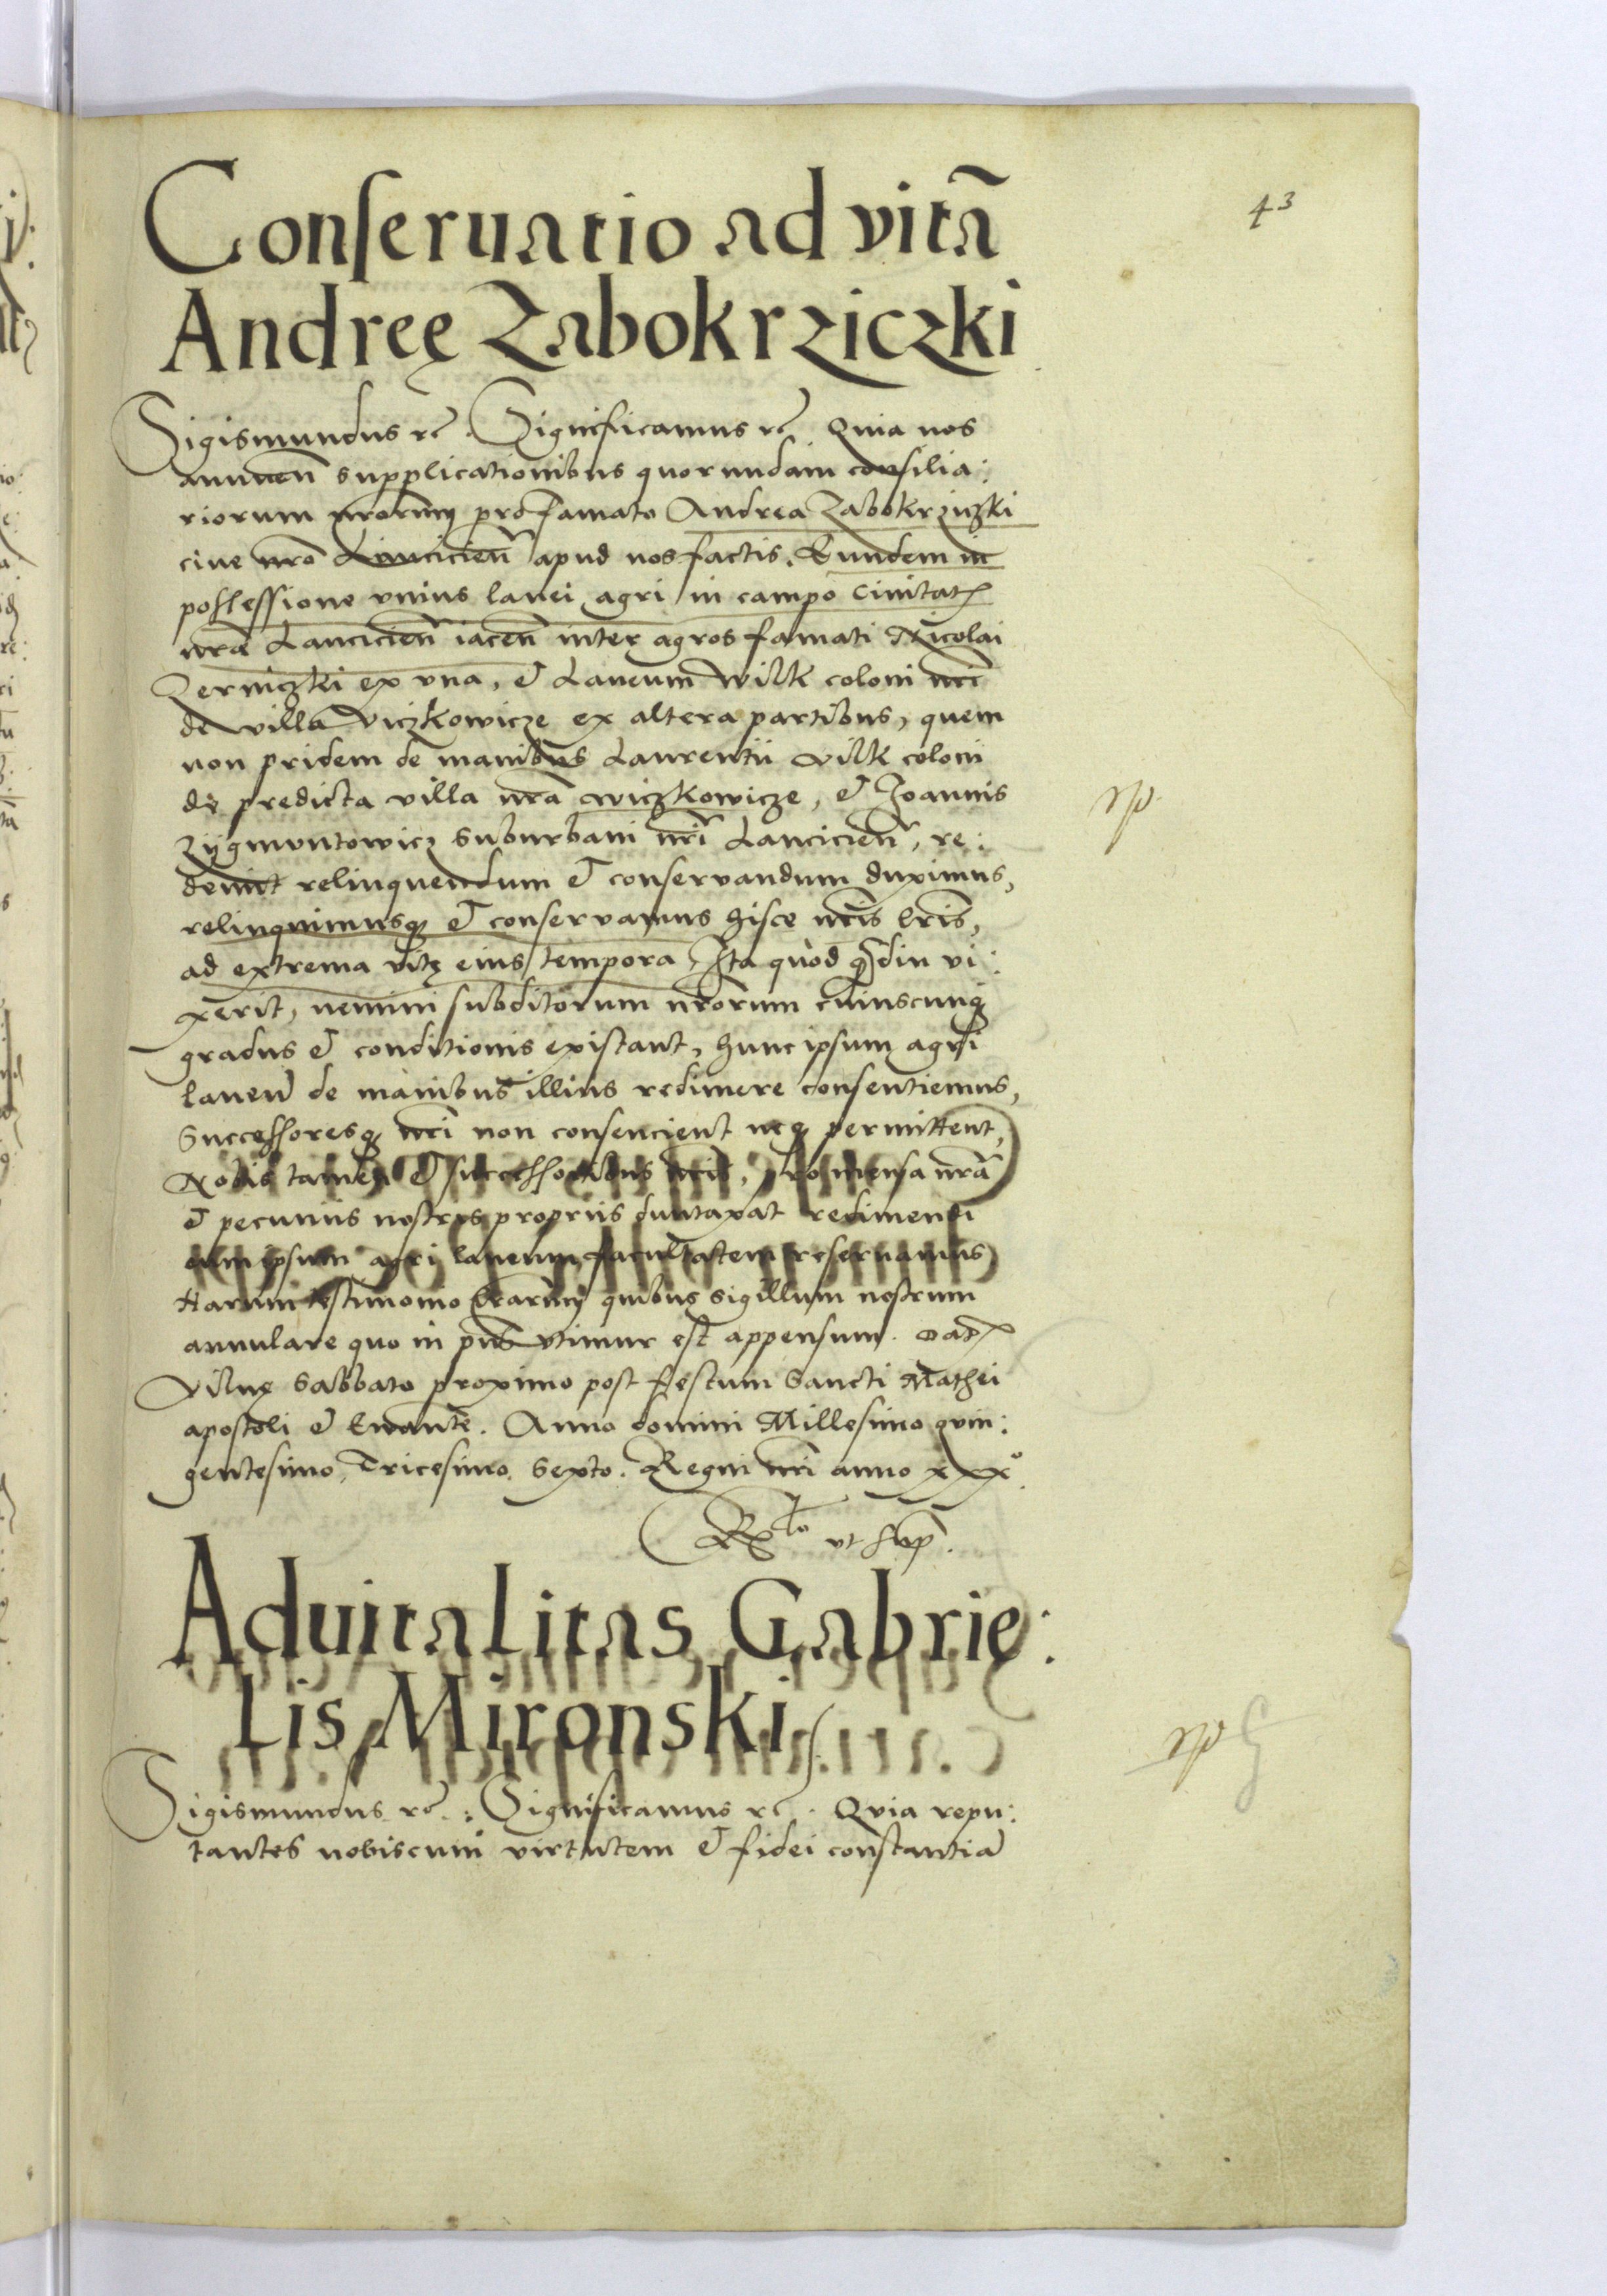 43
Conseruatio ad vitā
Andreę Zabokrziczki
Sigismundus rc̄. Significamus rc̄. Quia nos
annuen̄ supplicationibus quorundam consilia:
riorum nrorum pro famato Andrea Zabokrziczki
ciue nrō Lancicien̄ apud nos factis. Eundem in
possessione vnius lanei agri in campo Ciuitatis
nrā Lancicien̄ iacen̄ inter agros famati Nicolai
Zerniczki ex vna, et Laneum Wilk coloni nri
de villa Viczkowicze ex altera partibus, quem
non pridem de manibus Laurentii Vilk coloni
de predicta villa nrā Wiczkowicze, et Joannis
Zygmuntowicz suburbani nrī Lancicien̄, re:
demit relinquendum et conservandum duximus,
relinquimusq et conservamus hisce nrīs lrīs,
ad extrema vitę eius tempora, Ita quod qdiu vi:
xerit, nemini subditorum nrorum cuiuscunq
gradus et conditionis existant, hunc ipsum agri
laneū de manibus illius redimere consentiemus,
Successoresq nrī non consencient neq permittent,
Nobis tamen et successoribus nrīs, pro mensa nrā
et pecuniis nostris propriis duntaxat redimendi
eum ipsum agri laneum facultatem reservamus
Harum testimonio lrarum quibus sigillum nostrum
annulare quo in pnt̄ vtimur est appensum. Dat
Vilnę Sabbato proximo post festum Sancti Mathei
apostoli et Ewante. Anno domini Millesimo quin:
gentesimo, Tricesimo Sexto. Regni nrī anno xxxº
Rlo vt sup̄.
Aduitalitas Gabrie:
lis Mironski
Sigismundus rc̄.: Significamus rc̄. Quia repu:
tantes nobiscum virtutem et fidei constantiā